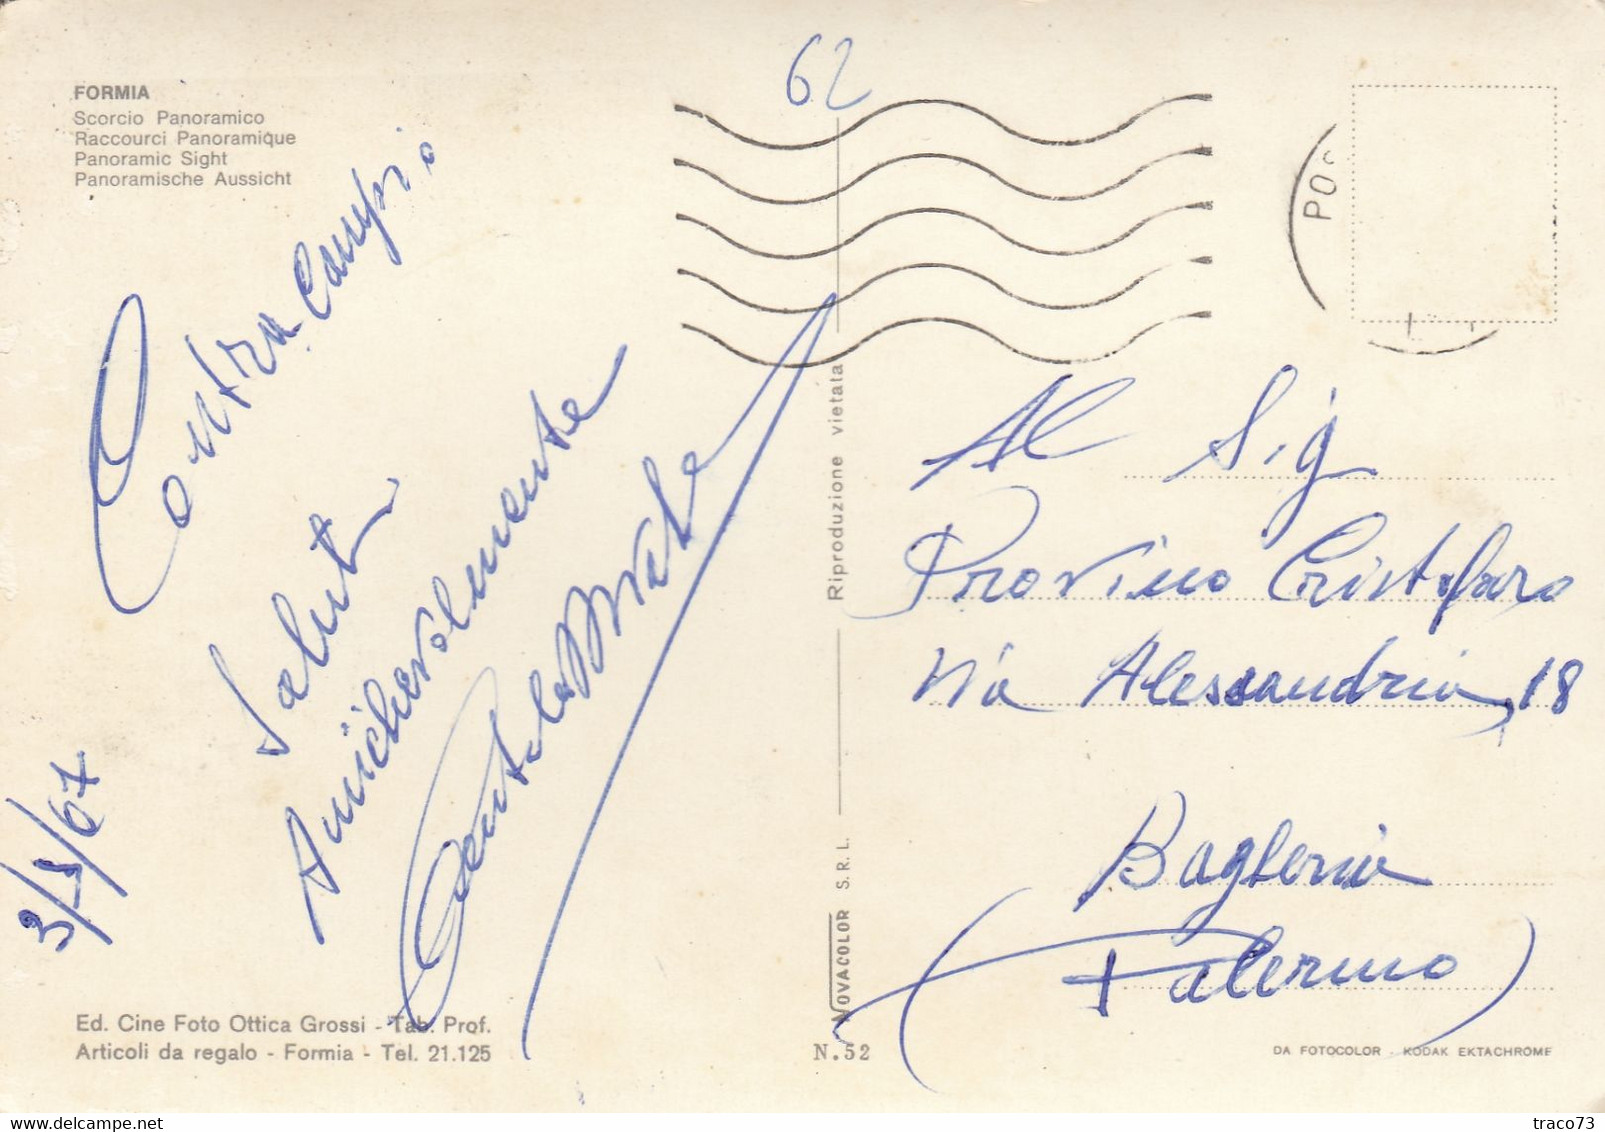 FORMIA
Scorcio Panoramico
Raccourci Panoramique
Panoramic Sight
Panoramische Aussicht
62
Saluti
Amichevolmente
3/5/67
Ed. Cine Foto Ottica Grossi - Tab. Prof.
Articoli da regalo - Formia - Tel. 21.125
Riproduzione vietata
NOVACOLOR S.R.L.
N.52
Al Sig
Provino Cristofaro
Via Alessandria, 18
Bagheria
(Palermo)
DA FOTOCOLOR - KODAK EKTACHROME
traco73